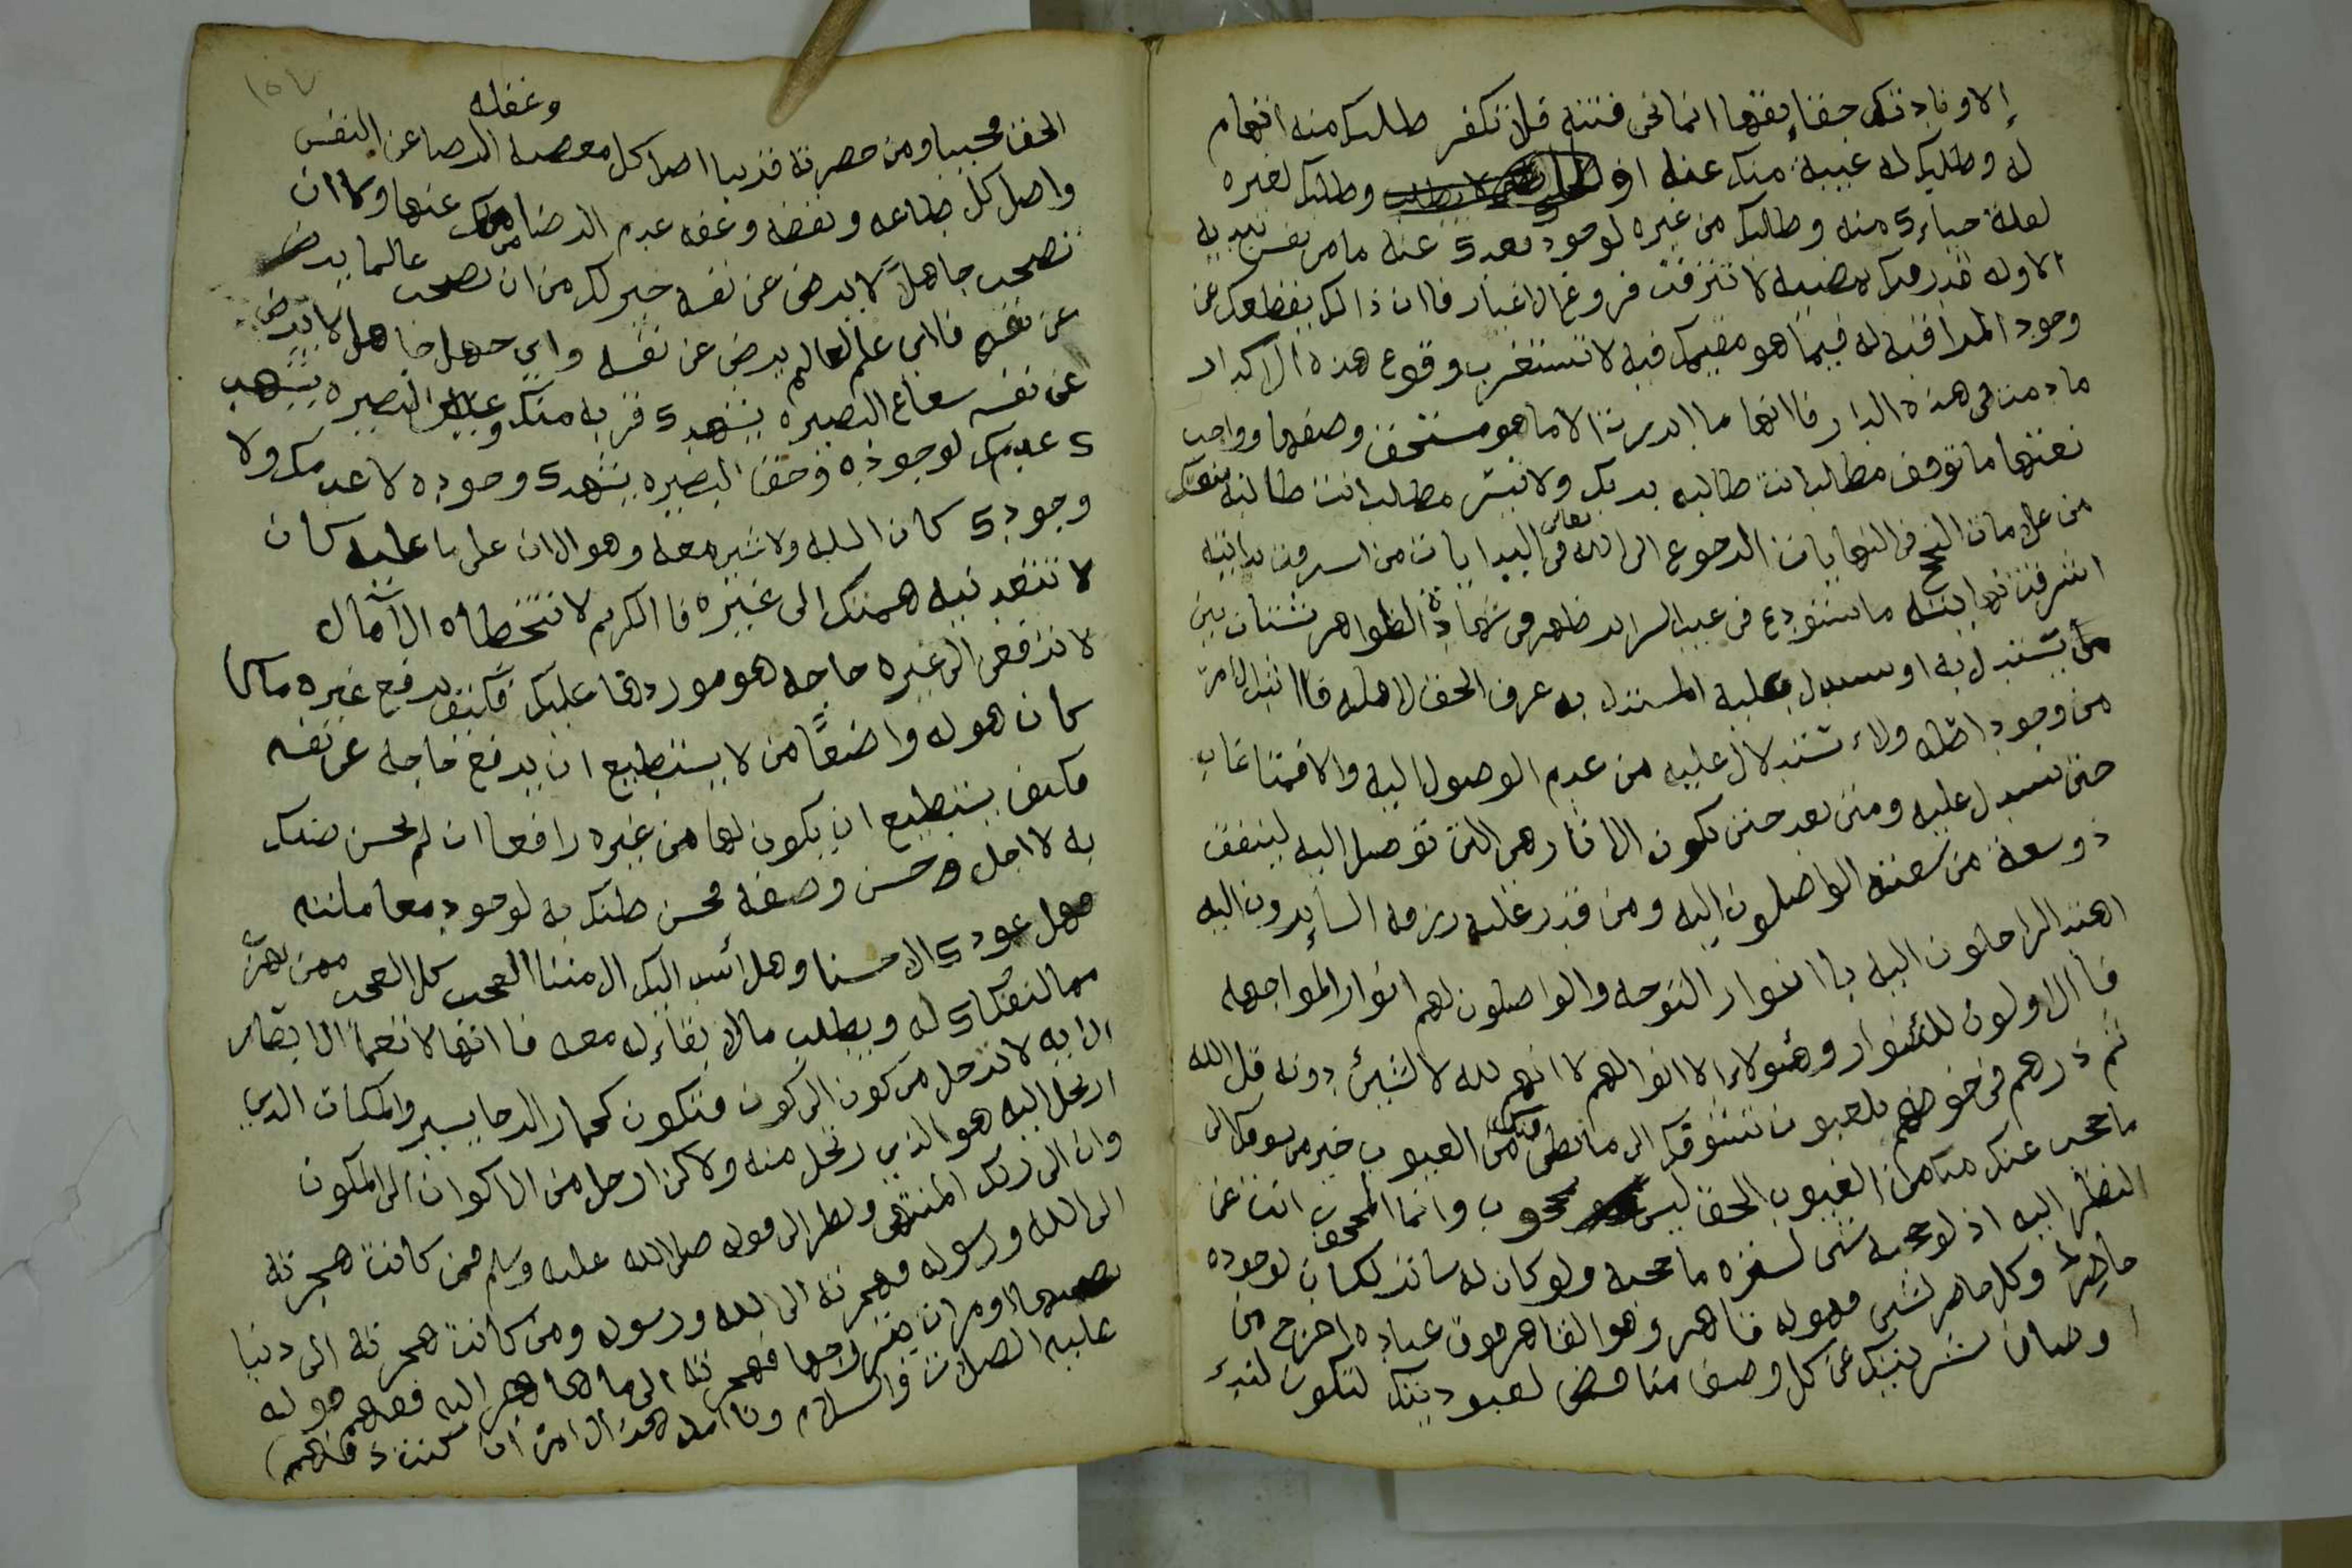 إلا ونادتك حقائقها انما نحن فتنة فلا تكفر طلبك منه اتهام
له وطلبك له غيبة منك عنه وطلبك لغيره
لعلة حياءك منه وطلبك من غيره لوجود بعدك عنه ما من نفس تبديه
الا وله قدر فيك يمضيه لا تترقب فروغ الاغيار فاان ذالك يقطعك عن
وجود المراقبه له فيما هو مقيمك فيه لا تستغرب وقوع هذه الاكدار
ما دمت في هذه الدار فاانها ما ابرزت الا ما هو مستحق وصفها وواجب
نعتها ما توقف مطلب انت طالبه بربك ولا تيسر مطلب انت طالبه بنفسك
من علامات النجح في النهايات الرجوع الى الله تعالى في البدايات من اشرقت بدايته
اشرقت نهايته ما استودع في غيب السرائر ظهر في شهادة الظواهر شتان بين
من يستدل به او يستدل عليه المستدل به عرف الحق لاهله فااثبت الامر
من وجود اصله والاءستدلال عليه من عدم الوصول اليه والا فمتا غاب
حتى يستدل عليه ومتى بعد حتى تكون الاثار هي التي توصل اليه لينفق
ذو سعة من سعته الواصلون اليه ومن قدر عليه رزقه السايرون اليه
اهتد الراحلون اليه باانوار التوجه والواصلون لهم انوار المواجهه
فاالاولون للئنوار وهئولاء الاانوا لهم لانهم لله لا لشيئ دونه قل الله
ثم ذرهم في خوضهم يلعبون تشوقك الى ما بطن فيك من العيوب خير من تشوقك الى
ما حجب عنك من الغيوب الحق ليس بمحجوب وانما المحجوب انت عن
النظر اليه اذ لو حجبه شى لستره ما حجبه ولو كان له ساتر لكان لوجوده
حاصرا وكل حاصر لشى فهو له قاهر وهو القاهر فوق عباده اخرج من
اوصاف بشريتك عن كل وصف مناقض لعبوديتك لتكون لندء
وغفله
الحق مجيبا ومن حضرته قريبا اصل كل معصية الرضا عن النفس
واصل كل طاعه ويقضه وعفه عدم الرضا منك عنها ولاان
تصحب جاهلا لا يرضى عن نفسه خير لك من ان تصحب عالما يرضى
عن نفسه فااي علم لعالم يرضى عن نفسه واي جهل جاهل لا يرضى
عن نفسه شعاع البصيره يشهدك قربه منك وعين البصيره يشهد
ك عدمك لوجوده وحق البصيره يشهدك وجوده لا عدمك ولا
وجودك كان الله ولا شيء معه وهو الان على ما عليه كان
لا تتعد نيه همتك الى غيره فاالكريم لا تتخطاه الآمال
لا ترفعن الى غيره حاجه هو موردها عليك فكيف يرفع غيره ما
كان هو له واضعا من لا يستطيع ان يرفع حاجه عن نفسه
فكيف يستطيع ان يكون لها من غيره رافعا ان لم تحسن ضنك
به لاجل وحسن وصفه فحسن ظنك به لوجود معاملته
فهل عودك الا حسنا وهل اسد اليك الا مننا العجب كل العجب ممن يهرب
مما لنفكاك له ويطلب مالا بقاء له معه فاانها لا تعما الابصار
الايه لا ترحل من كون الى كون فتكون كحمار الرحا يسير والمكان الذي
ارتحل اليه هو الذي رتحل منه ولاكن ارحل من الاكوان الى المكون
وان الى ربك المنتهى ونظر الى قوله صلى الله عليه وسلم فمن كانت هجرته
الى الله ورسوله فهجرته الى الله ورسوله ومن كانت هجرته الى دنيا
يصيبها او مرات يتزوجها فهجرته الى ما هاجر اليه فهم قوله
عليه الصلات والسلام وتاامل هذا الامر ان كنت ذا فهم